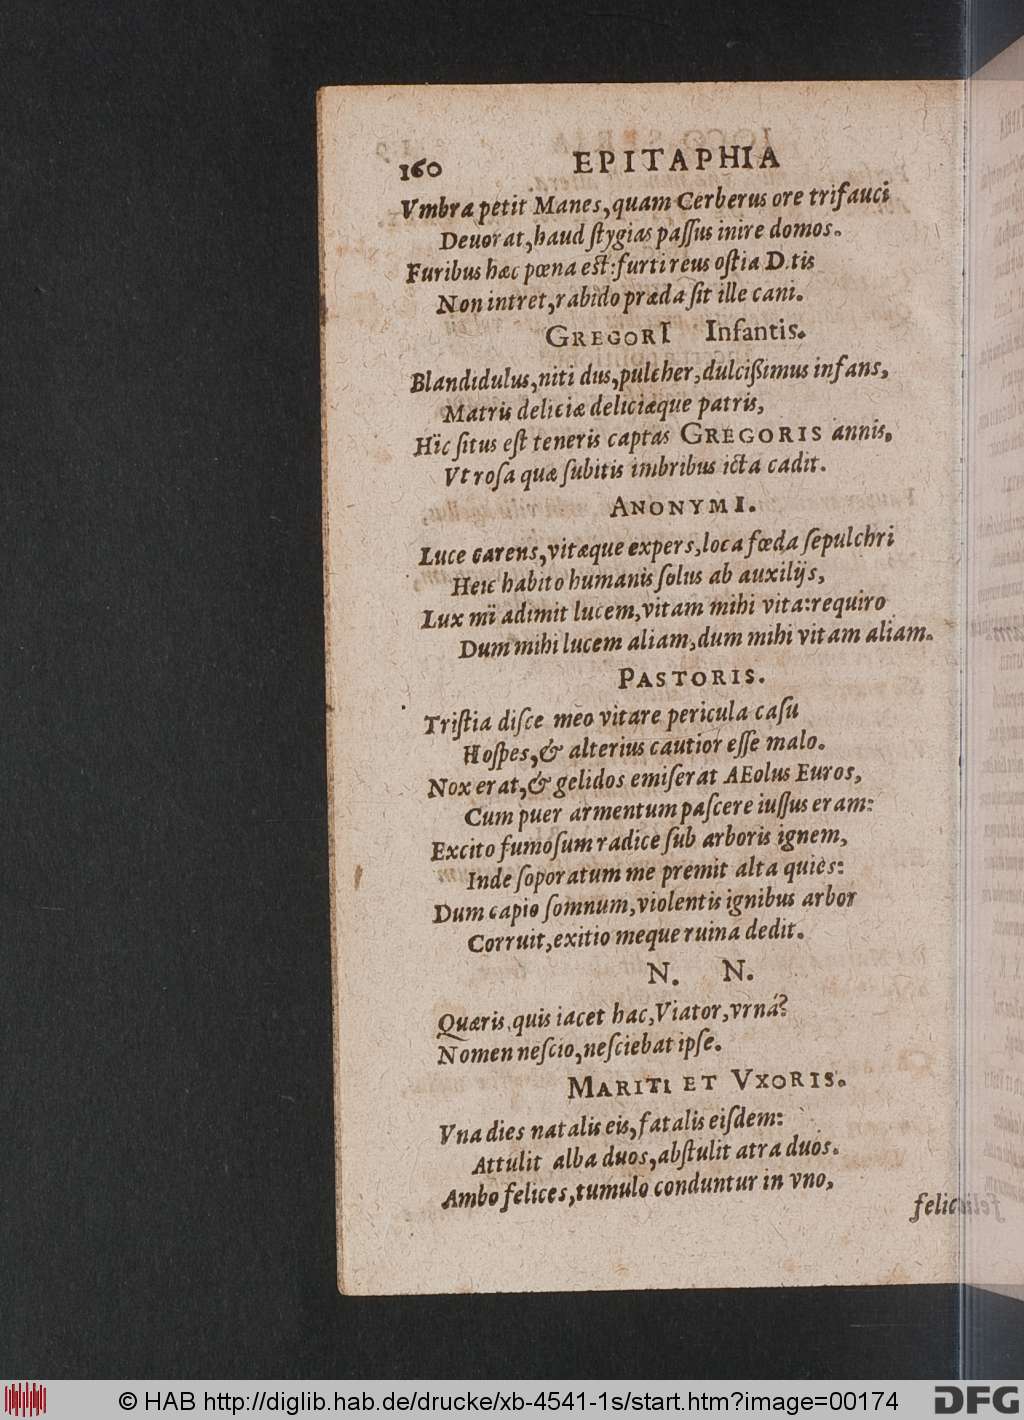 160 EPITAPHIA
Vmbra petit Manes, quam Cerberus ore trifauci
Deuorat, haud ſtygias paſſus inire domos.
Furibus hæc pœna eſt: furti reus oſtia D.tis
Non intret, rabido præda ſit ille cani.
GREGORI Infantis.
Blandidulus, niti dus, pulcher, dulcißimus infans,
Matris deliciæ deliciæque patris,
Hîc ſitus eſt teneris captas GREGORIS annis,
Vt roſa quæ ſubitis imbribus icta cadit.
ANONYMI.
Luce carens, vitæque expers, loca fœda ſepulchri
Heic habito humanis ſolus ab auxilijs,
Lux mî adimit lucem, vitam mihi vita: requiro
Dum mihi lucem aliam, dum mihi vitam aliam.
PASTORIS.
Triſtia diſce meo vitare pericula caſu
Hoſpes, & alterius cautior eſſe malo.
Nox erat, & gelidos emiſerat AEolus Euros,
Cum puer armentum paſcere iuſſus eram:
Excito fumoſum radice ſub arboris ignem,
Inde ſoporatum me premit alta quiès:
Dum capio ſomnum, violentis ignibus arbor
Corruit, exitio meque ruina dedit.
N. N.
Quæris, quis iacet hac, Viator, vrnâ?
Nomen neſcio, neſciebat ipſe.
MARITI ET VXORIS.
Vna dies natalis eis, fatalis eiſdem:
Attulit alba duos, abſtulit atra duos.
Ambo felices, tumulo conduntur in vno,
© HAB http://diglib.hab.de/drucke/xb-4541-1s/start.htm?image=00174
DFG